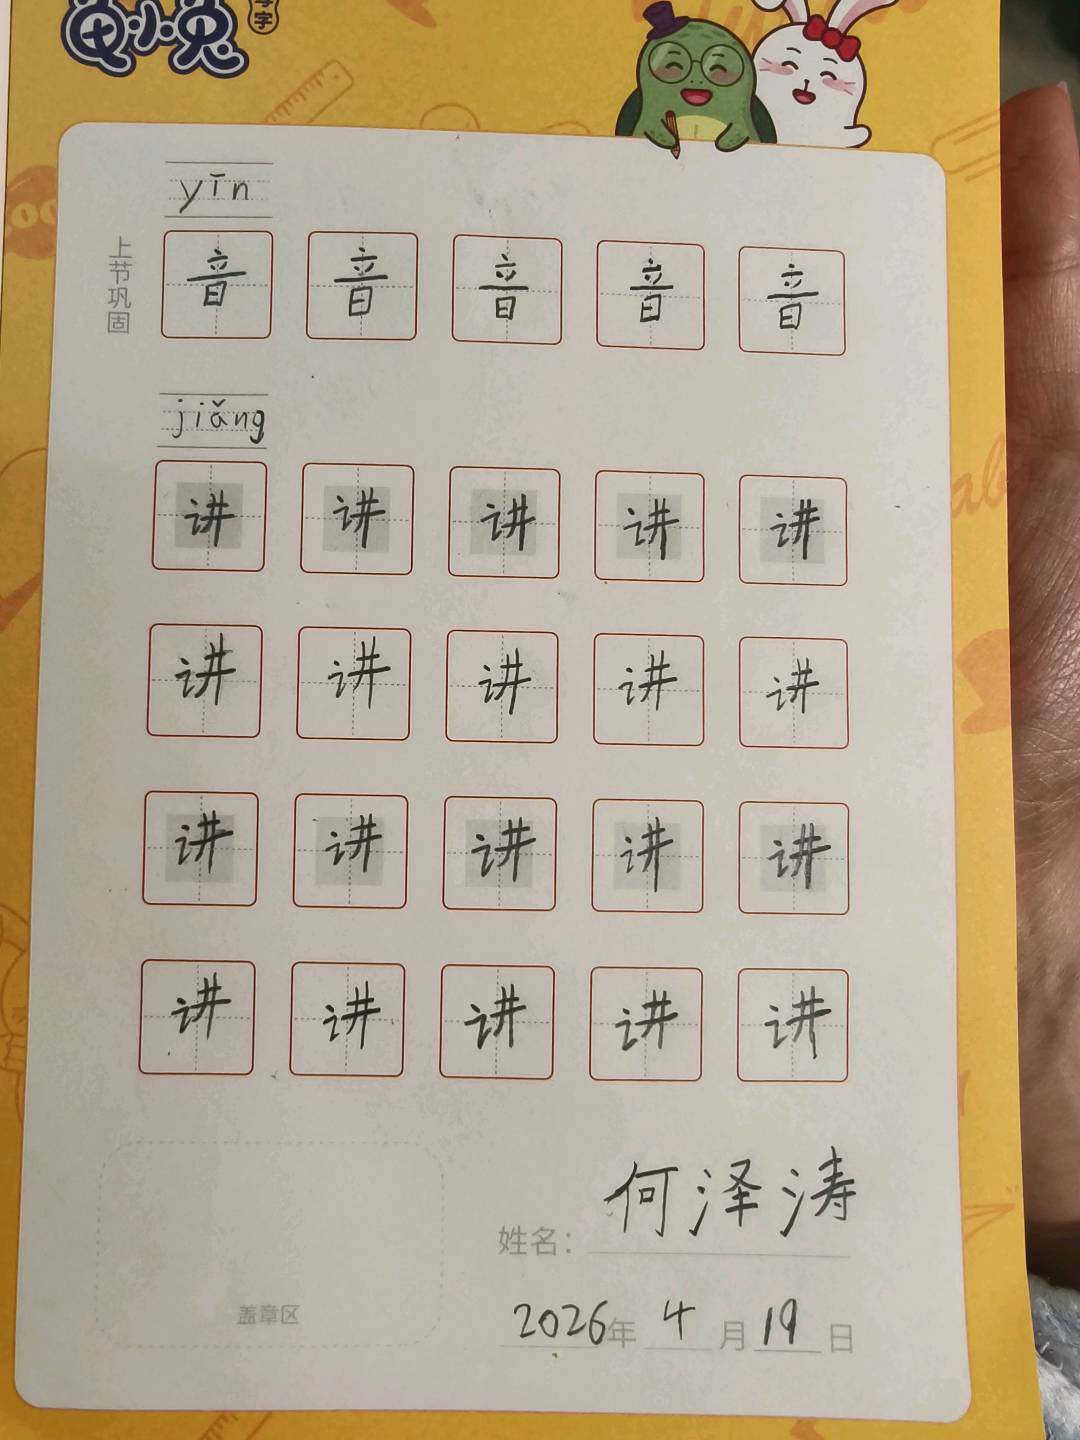 龟小兔
写字
yīn
上节巩固
音 音 音 音 音
jiǎng
讲 讲 讲 讲 讲
讲 讲 讲 讲 讲
讲 讲 讲 讲 讲
讲 讲 讲 讲 讲
姓名：何泽涛
盖章区
2026年 4 月 19 日